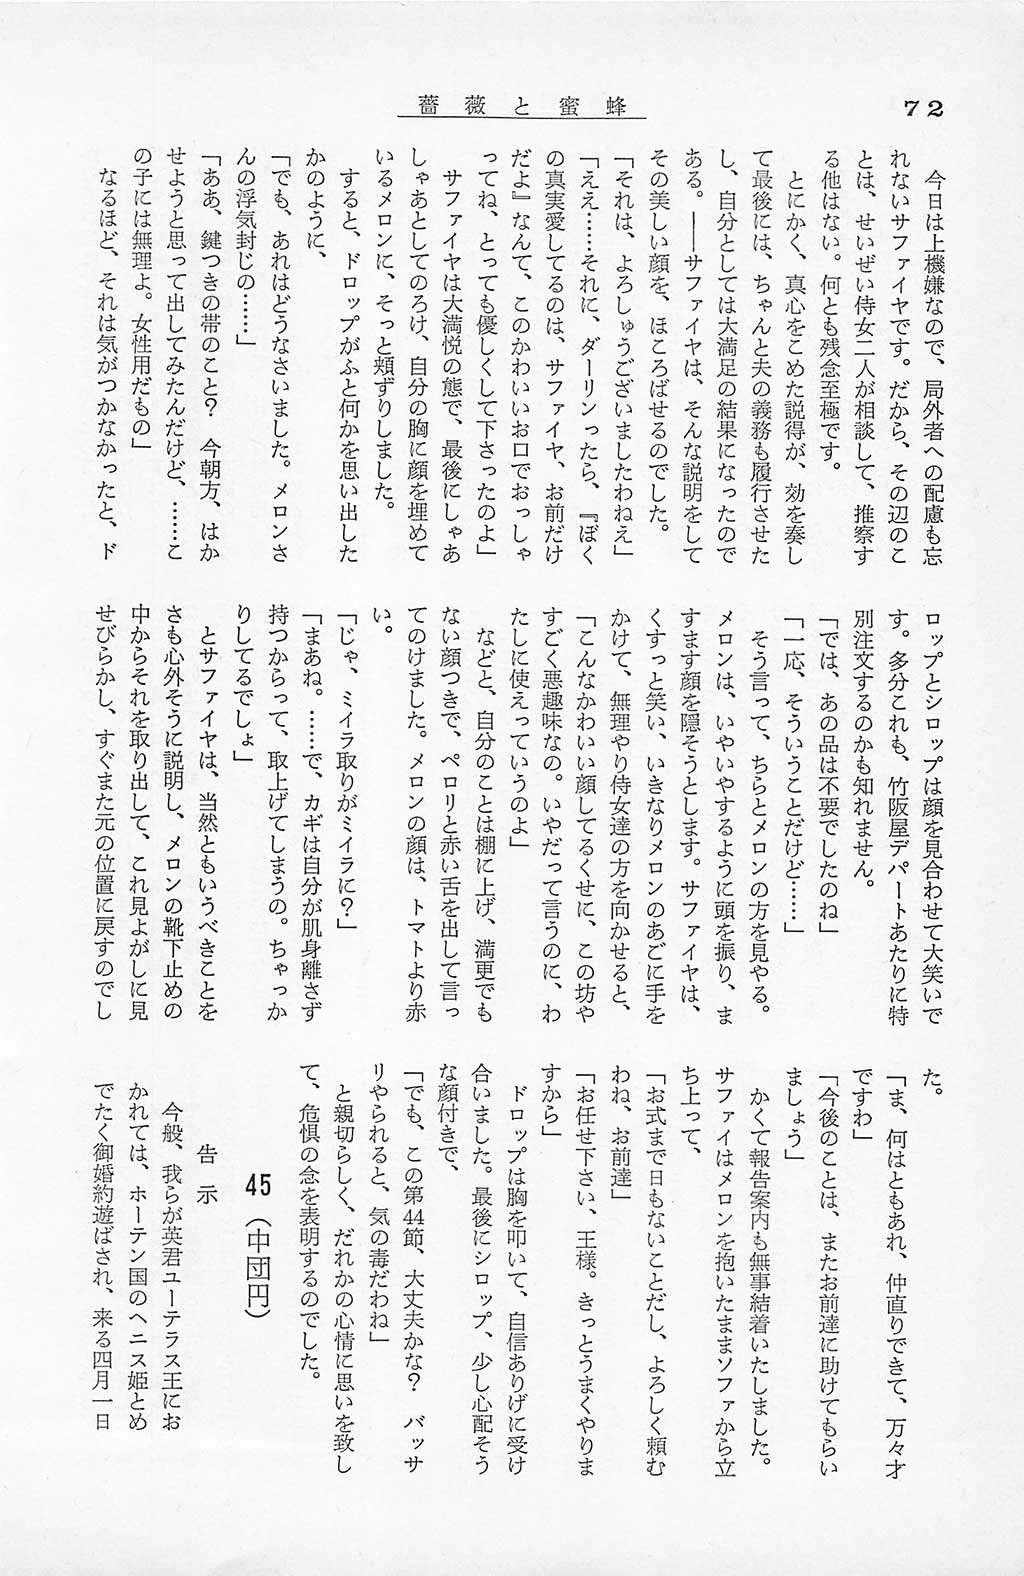 72
薔薇と蜜蜂
今日は上機嫌なので、局外者への配慮も忘
れないサファイヤです。だから、その辺のこ
とは、せいぜい侍女二人が相談して、推察す
る他はない。何とも残念至極です。
とにかく、真心をこめた説得が、効を奏し
て最後には、ちゃんと夫の義務も履行させた
し、自分としては大満足の結果になったので
ある。――サファイヤは、そんな説明をして
その美しい顔を、ほころばせるのでした。
「それは、よろしゅうございましたわねえ」
「ええ……それに、ダーリンったら、『ぼく
の真実愛してるのは、サファイヤ、お前だけ
だよ』なんて、このかわいいお口でおっしゃ
ってね、とっても優しくして下さったのよ」
サファイヤは大満悦の態で、最後にしゃあ
しゃあとしてのろけ、自分の胸に顔を埋めて
いるメロンに、そっと頬ずりしました。
すると、ドロップがふと何かを思い出した
かのように、
「でも、あれはどうなさいました。メロンさ
んの浮気封じの……」
「ああ、鍵つきの帯のこと？　今朝方、はか
せようと思って出してみたんだけど、……こ
の子には無理よ。女性用だもの」
なるほど、それは気がつかなかったと、ド
ロップとシロップは顔を見合わせて大笑いで
す。多分これも、竹阪屋デパートあたりに特
別注文するのかも知れません。
「では、あの品は不要でしたのね」
「一応、そういうことだけど……」
そう言って、ちらとメロンの方を見やる。
メロンは、いやいやするように頭を振り、ま
すます顔を隠そうとします。サファイヤは、
くすっと笑い、いきなりメロンのあごに手を
かけて、無理やり侍女達の方を向かせると、
「こんなかわいい顔してるくせに、この坊や
すごく悪趣味なの。いやだって言うのに、わ
たしに使えっていうのよ」
などと、自分のことは棚に上げ、満更でも
ない顔つきで、ペロリと赤い舌を出して言っ
てのけました。メロンの顔は、トマトより赤
い。
「じゃ、ミイラ取りがミイラに？」
「まあね。……で、カギは自分が肌身離さず
持つからって、取上げてしまうの。ちゃっか
りしてるでしょ」
とサファイヤは、当然ともいうべきことを
さも心外そうに説明し、メロンの靴下止めの
中からそれを取り出して、これ見よがしに見
せびらかし、すぐまた元の位置に戻すのでし
た。
「ま、何はともあれ、仲直りできて、万々才
ですわ」
「今後のことは、またお前達に助けてもらい
ましょう」
かくて報告案内も無事結着いたしました。
サファイはメロンを抱いたままソファから立
ち上って、
「お式まで日もないことだし、よろしく頼む
わね、お前達」
「お任せ下さい、王様。きっとうまくやりま
すから」
ドロップは胸を叩いて、自信ありげに受け
合いました。最後にシロップ、少し心配そう
な顔付きで、
「でも、この第44節、大丈夫かな？　バッサ
リやられると、気の毒だわね」
と親切らしく、だれかの心情に思いを致し
て、危惧の念を表明するのでした。
45（中団円）
告示
今般、我らが英君ユーテラス王にお
かれては、ホーテン国のヘニス姫とめ
でたく御婚約遊ばされ、来る四月一日